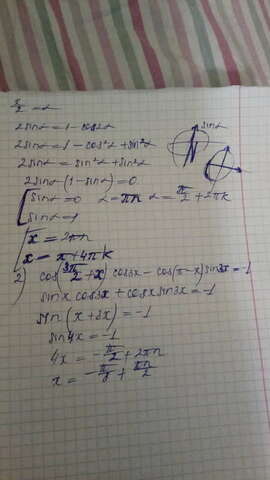 x/2 = α
2sinα = 1 - cos2α
2sinα = 1 - cos²α + sin²α
2sinα = sin²α + sin²α
2sinα(1 - sinα) = 0
sinα
[sinα = 0 α = πn α = π/2 + 2πk
sinα = 1
[x = 2πn
x = π + 4πk
2) cos(3π/2 + x) cos3x - cos(π - x) sin3x = -1
sinx cos3x + cosx sin3x = -1
sin(x + 3x) = -1
sin4x = -1
4x = -π/2 + 2πn
x = -π/8 + πn/2